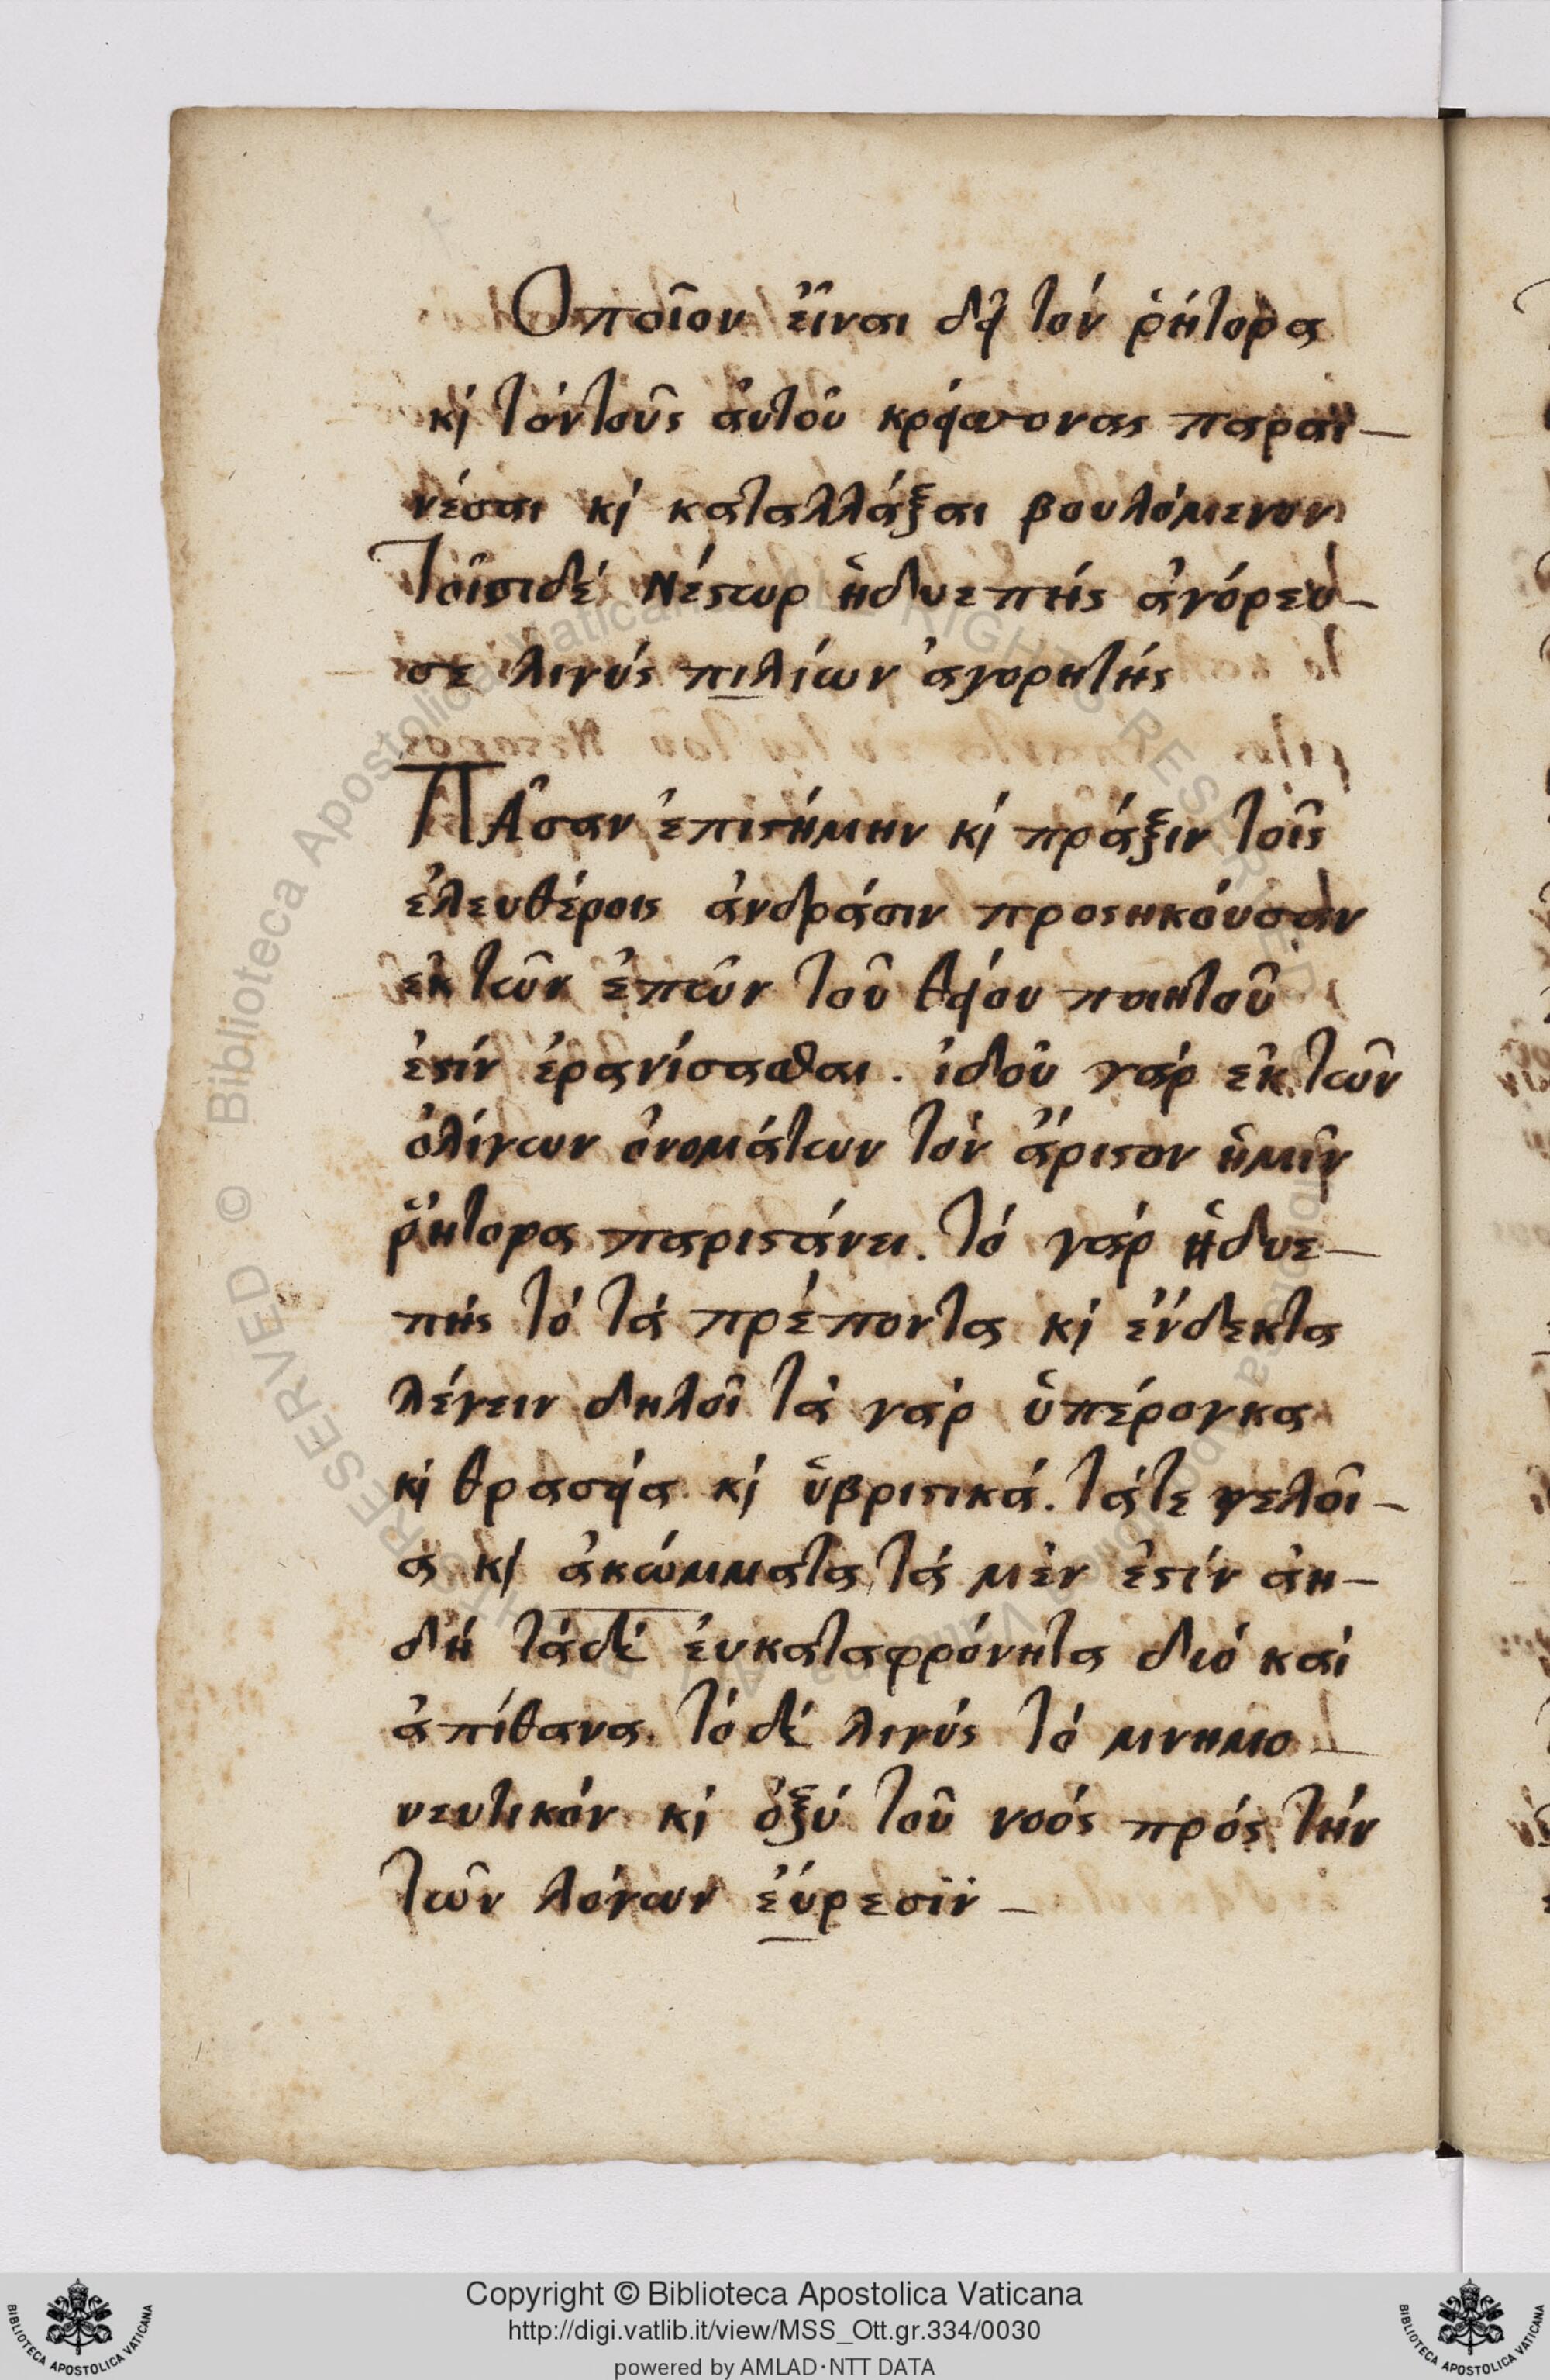 Ὁποῖον εἶναι δεῖ τόν ῥήτορα
κỳ τόν τοῦς αὐτοῦ κρείττονας παραϊ-
νέσαι κỳ καταλλάξαι βουλόμενον
Τοῖσιδέ Νέστωρ ἡδυεπής ἀνόρευ-
σε λιγύς πιλίων ἀγορητής
ΠΑ͂σαν ἐπιστήμην κỳ πράξιν τοῖς
ἐλευθέροις ἀνδράσιν προσηκόυσαν
ἐκ τῶν ἐπῶν τοῦ θείου ποιητοῦ
ἐστίν ἐρανίσασθαι. ἰδοῦ γάρ ἐκ τῶν
ὀλίγων ὀνομάτων τόν ἄριστον ἡμῖν
ῥήτορα παριστάνει. τό γάρ ἡδυε-
πής τό τά πρέποντα κỳ ἔνδεκτα
λέγειν δηλοῖ τά γάρ ὑπέρογκα
κỳ θρασεία κỳ ὑβριστικά. τάτε γελοῖ-
α κỳ ἀκώμματα τά μέν ἐστίν ἀη-
δή τάδέ ἐυκαταφρόνητα διό καί
ἀπίθανα. τόδέ λιγύς τό μνημο-
νευτικόν κỳ ὀξύ τοῦ νοός πρός τήν
τῶν λόγων ἐύρεσϊν -
Copyright © Biblioteca Apostolica Vaticana
http://digi.vatlib.it/view/MSS_Ott.gr.334/0030
powered by AMLAD·NTT DATA
BIBLIOTECA APOSTOLICA VATICANA
BIBLIOTECA APOSTOLICA VATICANA